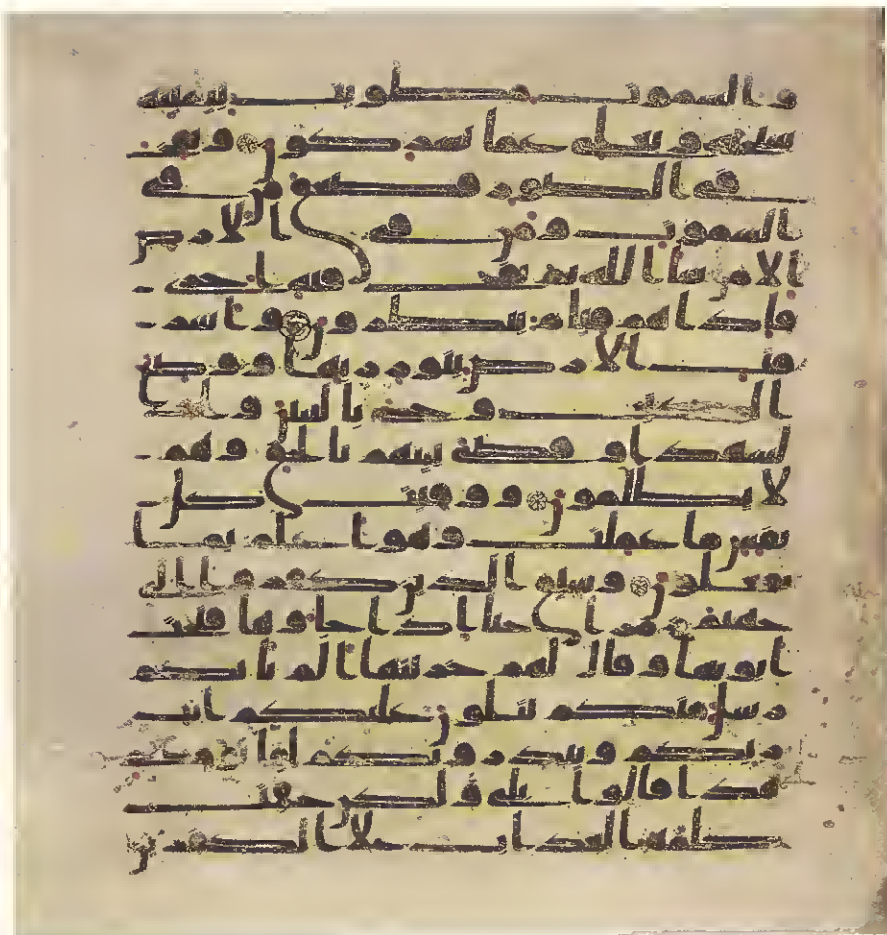 والسموت مطويت بيمينه
سبحنه وتعلى عما يشركون ونفخ
في الصور فصعق من في
السموت ومن في الارض
الا من شا الله ثم نفخ فيه اخرى
فاذا هم قيام ينظرون واشر
قت الارض بنور ربها ووضع
الكتب وجاى بالنبين وا
لشهدا وقضي بينهم بالحق وهم
لا يظلمون ووفيت كل
نفس ما عملت وهو اعلم بما
يفعلون وسيق الذين كفروا الى
جهنم زمرا حتى اذا جاوها فتحت
ابوبها وقال لهم خزنتها الم ياتكم
رسل منكم يتلون عليكم ايت
ربكم وينذرونكم لقا يومكم
هذا قالوا بلى ولكن حقت
كلمة العذاب على الكفرين